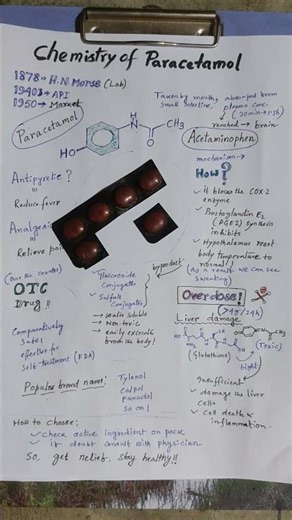 Chemistry of Paracetamol
1878 → H.N. Morse (Lab)
1940s → API
1950 → Market
Paracetamol
HO
H
N
O
CH3
Taken by mouth, absorbed from
small intestine, plasma conc.
(20min - 1.5h)
reached → brain
Acetaminophen
mechanism →
How?
✓ it blocks the COX-2
enzyme
✓ Prostaglandin E2
(PGE2) synthesis
inhibits
✓ Hypothalamus reset
body temperature to
normal!
(as a result we can see
sweating)
Antipyretic?
Reduce fever
Analges
Relieve pain
(over the counter)
OTC
Drug!!
Comparatively
safe,
effective for
self-treatment (FDA)
✓ Glucuronide
Conjugates
✓ Sulfate
Conjugates
byproduct
→ water soluble
→ Non-toxic
→ easily excrete
from the body!
Overdose!
(>4g/24h)
Liver damage
(Glutathione)
(Toxic)
fight
Insufficient
✓ damage the liver
cells
✓ cell death &
inflammation.
Popular brand name:
Tylenol
Calpol
Panadol
so on!
How to choose:
✓ check active ingredient on pack
✓ if doubt consult with physician
So, get relief, stay healthy!!